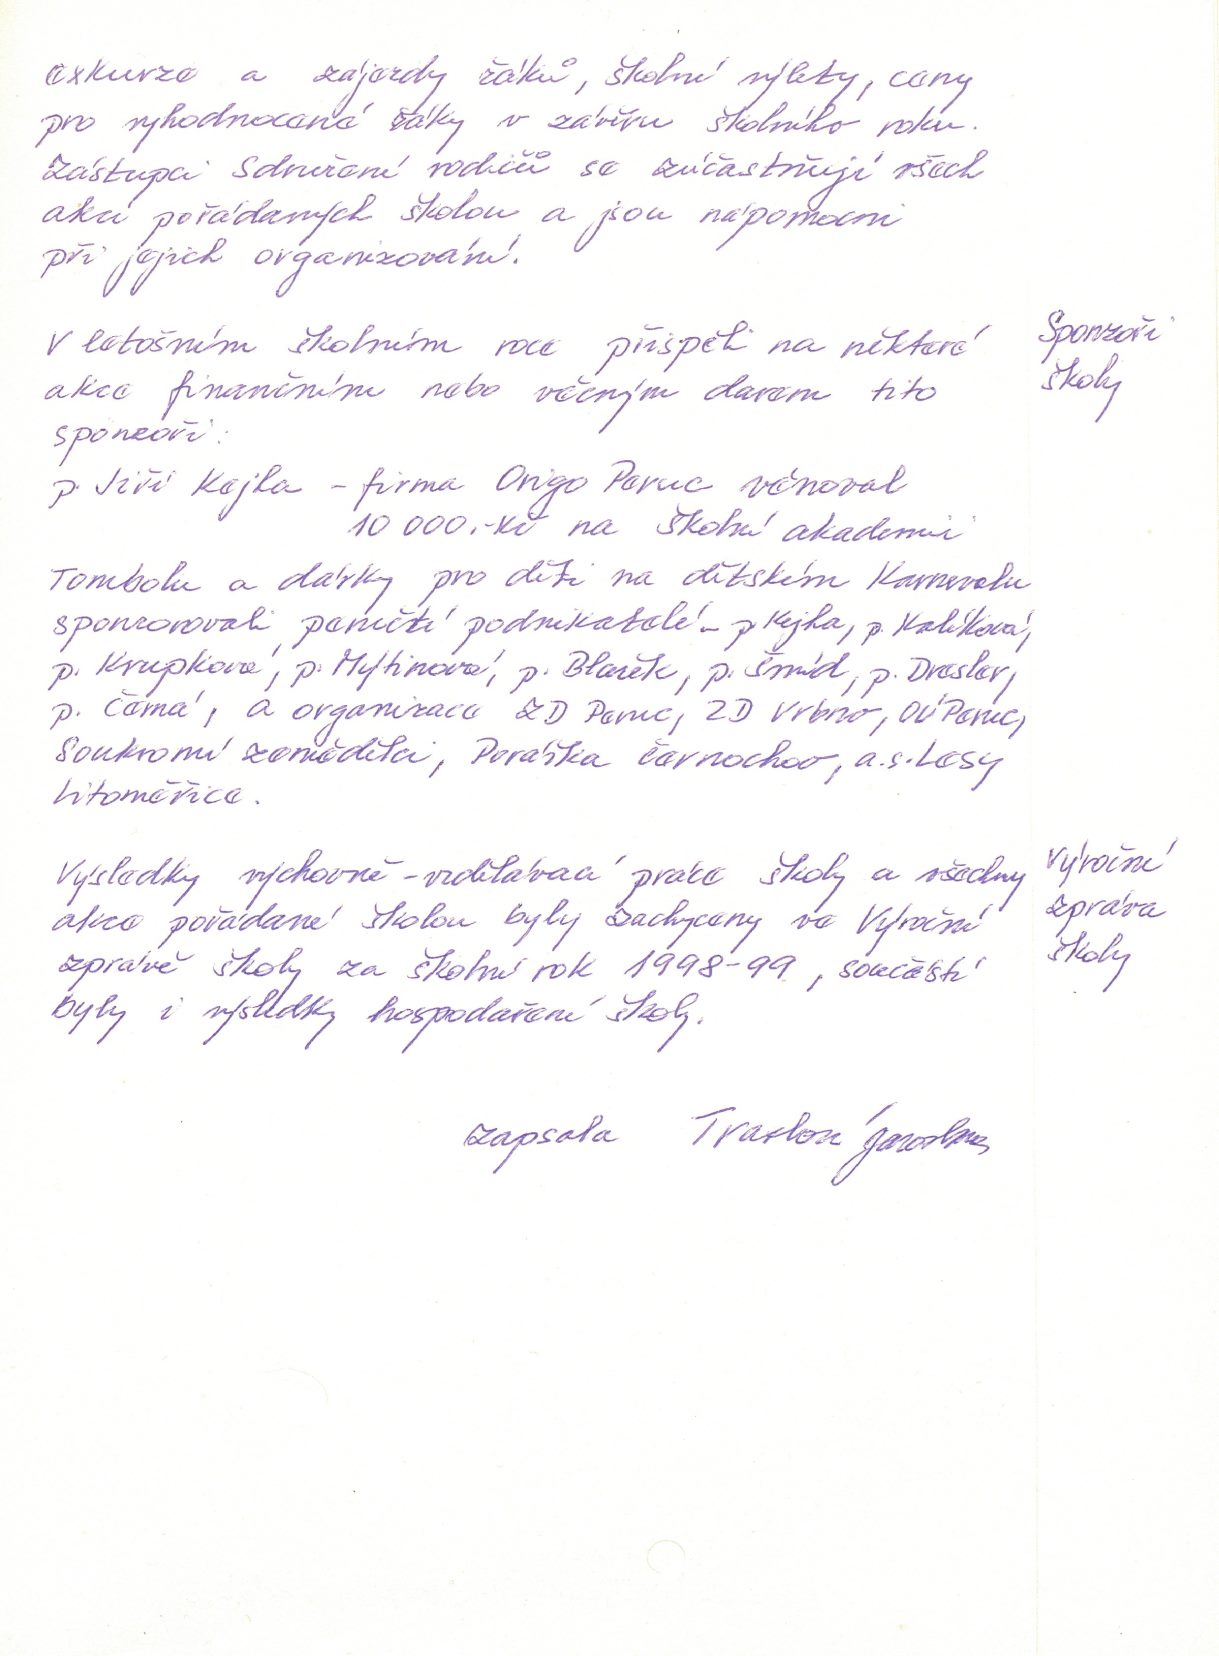 exkurze a zájezdy žáků, školní výlety, ceny
pro vyhodnocené žáky v závěru školního roku.
Zástupci Sdružení rodičů se zúčastňují všech
akcí pořádaných školou a jsou nápomocni
při jejich organizování.
V letošním školním roce přispěli na některé
akce finančním nebo věcným darem tito
sponzoři:
Sponzoři
školy
p. Jiří Kejha - firma Origo Peruc věnoval
10 000.-Kč na školní akademii
Tombolu a dárky pro děti na dětském Karnevalu
sponzorovali peručtí podnikatelé - p Kejha, p. Kalíková,
p. Krupková, p. Mýtinová, p. Blažek, p. Šmíd, p. Dresler,
p. Černá, a organizace ZD Peruc, ZD Vrbno, OÚ Peruc,
Soukromí zemědělci, Porážka Černochov, a.s. Lesy
Litoměřice.
Výsledky výchovně-vzdělávací práce školy a všechny
akce pořádané školou byly zachyceny ve Výroční
zprávě školy za školní rok 1998-99, součástí
byly i výsledky hospodaření školy.
Výroční
zpráva
školy
zapsala